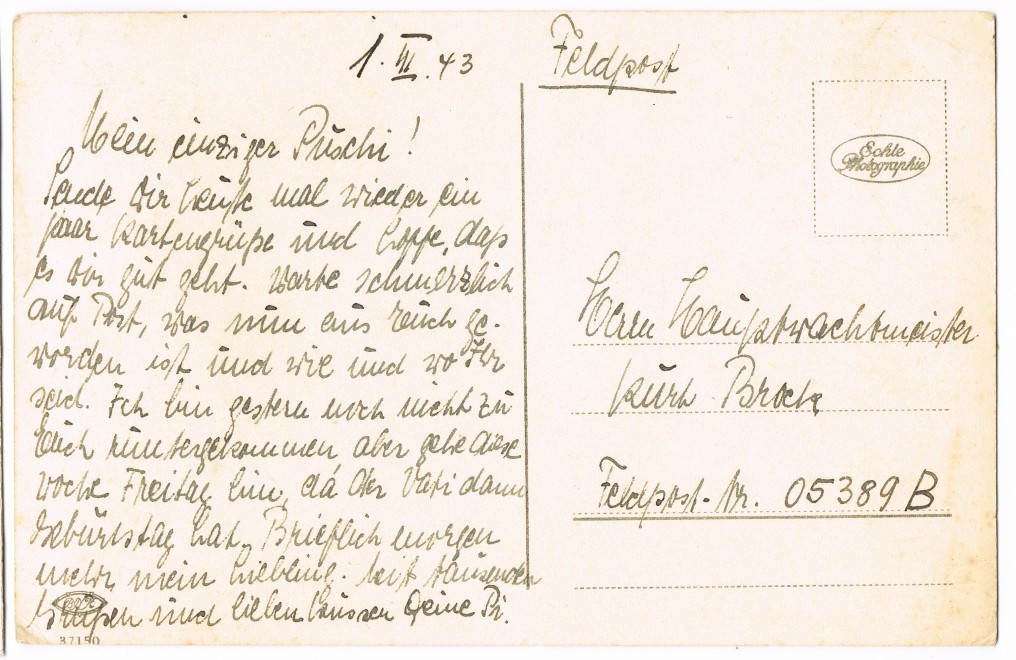 1. III. 43
Mein einziger Puschi!
Sende Dir heute mal wieder ein
paar Kartengrüße und hoffe, daß
es Dir gut geht. Warte schmerzlich
auf Post, was nun aus Euch ge-
worden ist und wie und wo Ihr
seid. Ich bin gestern noch nicht zu
Euch runtergekommen aber gehe diese
Woche Freitag hin, da der Vati dann
Geburtstag hat. Brieflich morgen
mehr mein Liebling. Mit tausenden
Grüßen und lieben Küssen Deine Pi.
37150
Feldpost
Echte
Photographie
Herrn Hauptwachtmeister
Kurt
Feldpost-Nr. 05389 B